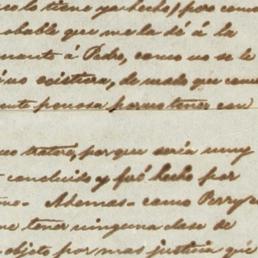 lo tiene ya hecho, pero como
probable que me la dé á la
á Pedro, como no se le
no existiera, de modo que como
penosa por no tener con
trataré, porque seria muy
concluido y fué hecho por
Ademas - como Perry
tener ninguna clase de
objeto por mas justicia que